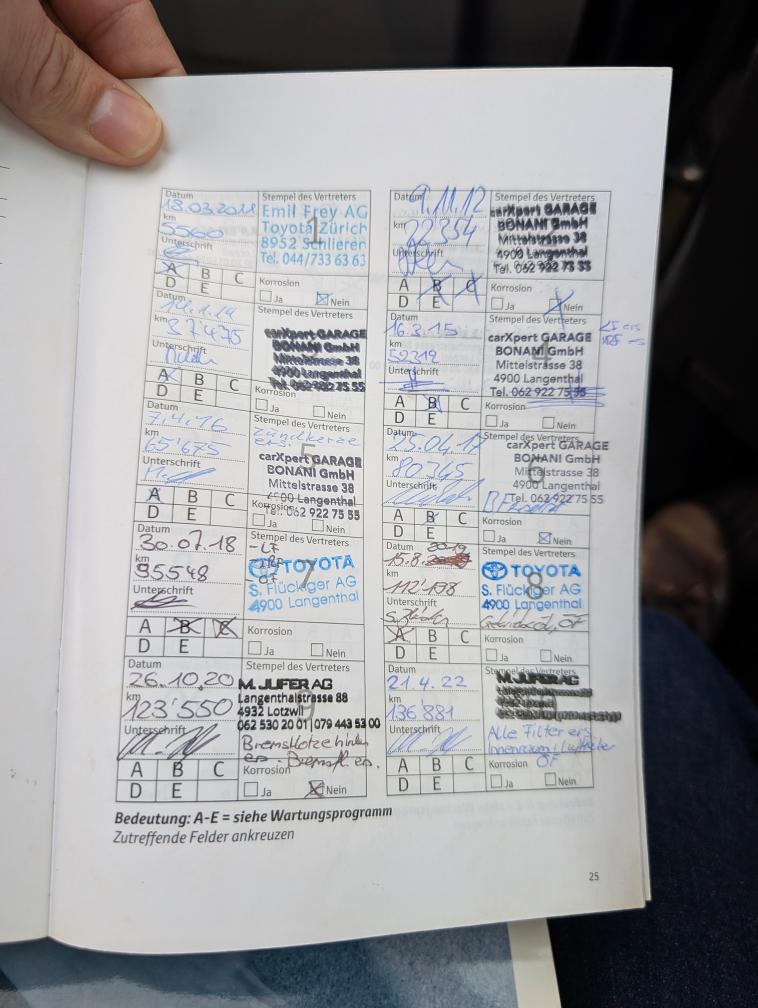 Datum
km
5560
Unterschrift
Stempel des Vertreters
Emil Frey AG
Toyota Zürich
8952 Schlieren
Tel. 044/733 63 63
1
A B C
D E
Korrosion
Ja Nein
Datum
9.11.12
km
22354
Unterschrift
Stempel des Vertreters
carXpert GARAGE
BONANI GmbH
Mittelstrasse 38
4900 Langenthal
Tel. 062 922 75 55
A B C
D E
Korrosion
Ja Nein
Datum
km
37475
Unterschrift
Stempel des Vertreters
carXpert GARAGE
BONANI GmbH
Mittelstrasse 38
4900 Langenthal
Tel. 062 922 75 55
A B C
D E
Korrosion
Ja Nein
Datum
16.3.15
km
52319
Unterschrift
Stempel des Vertreters
carXpert GARAGE
BONANI GmbH
Mittelstrasse 38
4900 Langenthal
Tel. 062 922 75 55
4
A B C
D E
Korrosion
Ja Nein
Datum
7.4.16
km
65'675
Unterschrift
Stempel des Vertreters
Zündkerze
ers.
5
carXpert GARAGE
BONANI GmbH
Mittelstrasse 38
4900 Langenthal
Tel. 062 922 75 55
A B C
D E
Korrosion
Ja Nein
Datum
25.04.17
km
80345
Unterschrift
Stempel des Vertreters
carXpert GARAGE
BONANI GmbH
Mittelstrasse 38
4900 Langenthal
Tel. 062 922 75 55
6
A B C
D E
Korrosion
Ja Nein
Datum
30.07.18
km
95548
Unterschrift
Stempel des Vertreters
TOYOTA
S. Flückiger AG
4900 Langenthal
7
A B C
D E
Korrosion
Ja Nein
Datum
2019
15.8.
km
112'198
Unterschrift
Stempel des Vertreters
TOYOTA
S. Flückiger AG
4900 Langenthal
8
A B C
D E
Korrosion
Ja Nein
Datum
26.10.20
km
123'550
Unterschrift
Stempel des Vertreters
M. JUFER AG
Langenthalstrasse 88
4932 Lotzwil
062 530 20 01 | 079 443 53 00
9
Bremsklötze hinten
ers. Bremsfl. ers.
A B C
D E
Korrosion
Ja Nein
Datum
21.4.22
km
136'881
Unterschrift
Stempel des Vertreters
M. JUFER AG
Alle Filter ers
ÖF
A B C
D E
Korrosion
Ja Nein
Bedeutung: A-E = siehe Wartungsprogramm
Zutreffende Felder ankreuzen
25